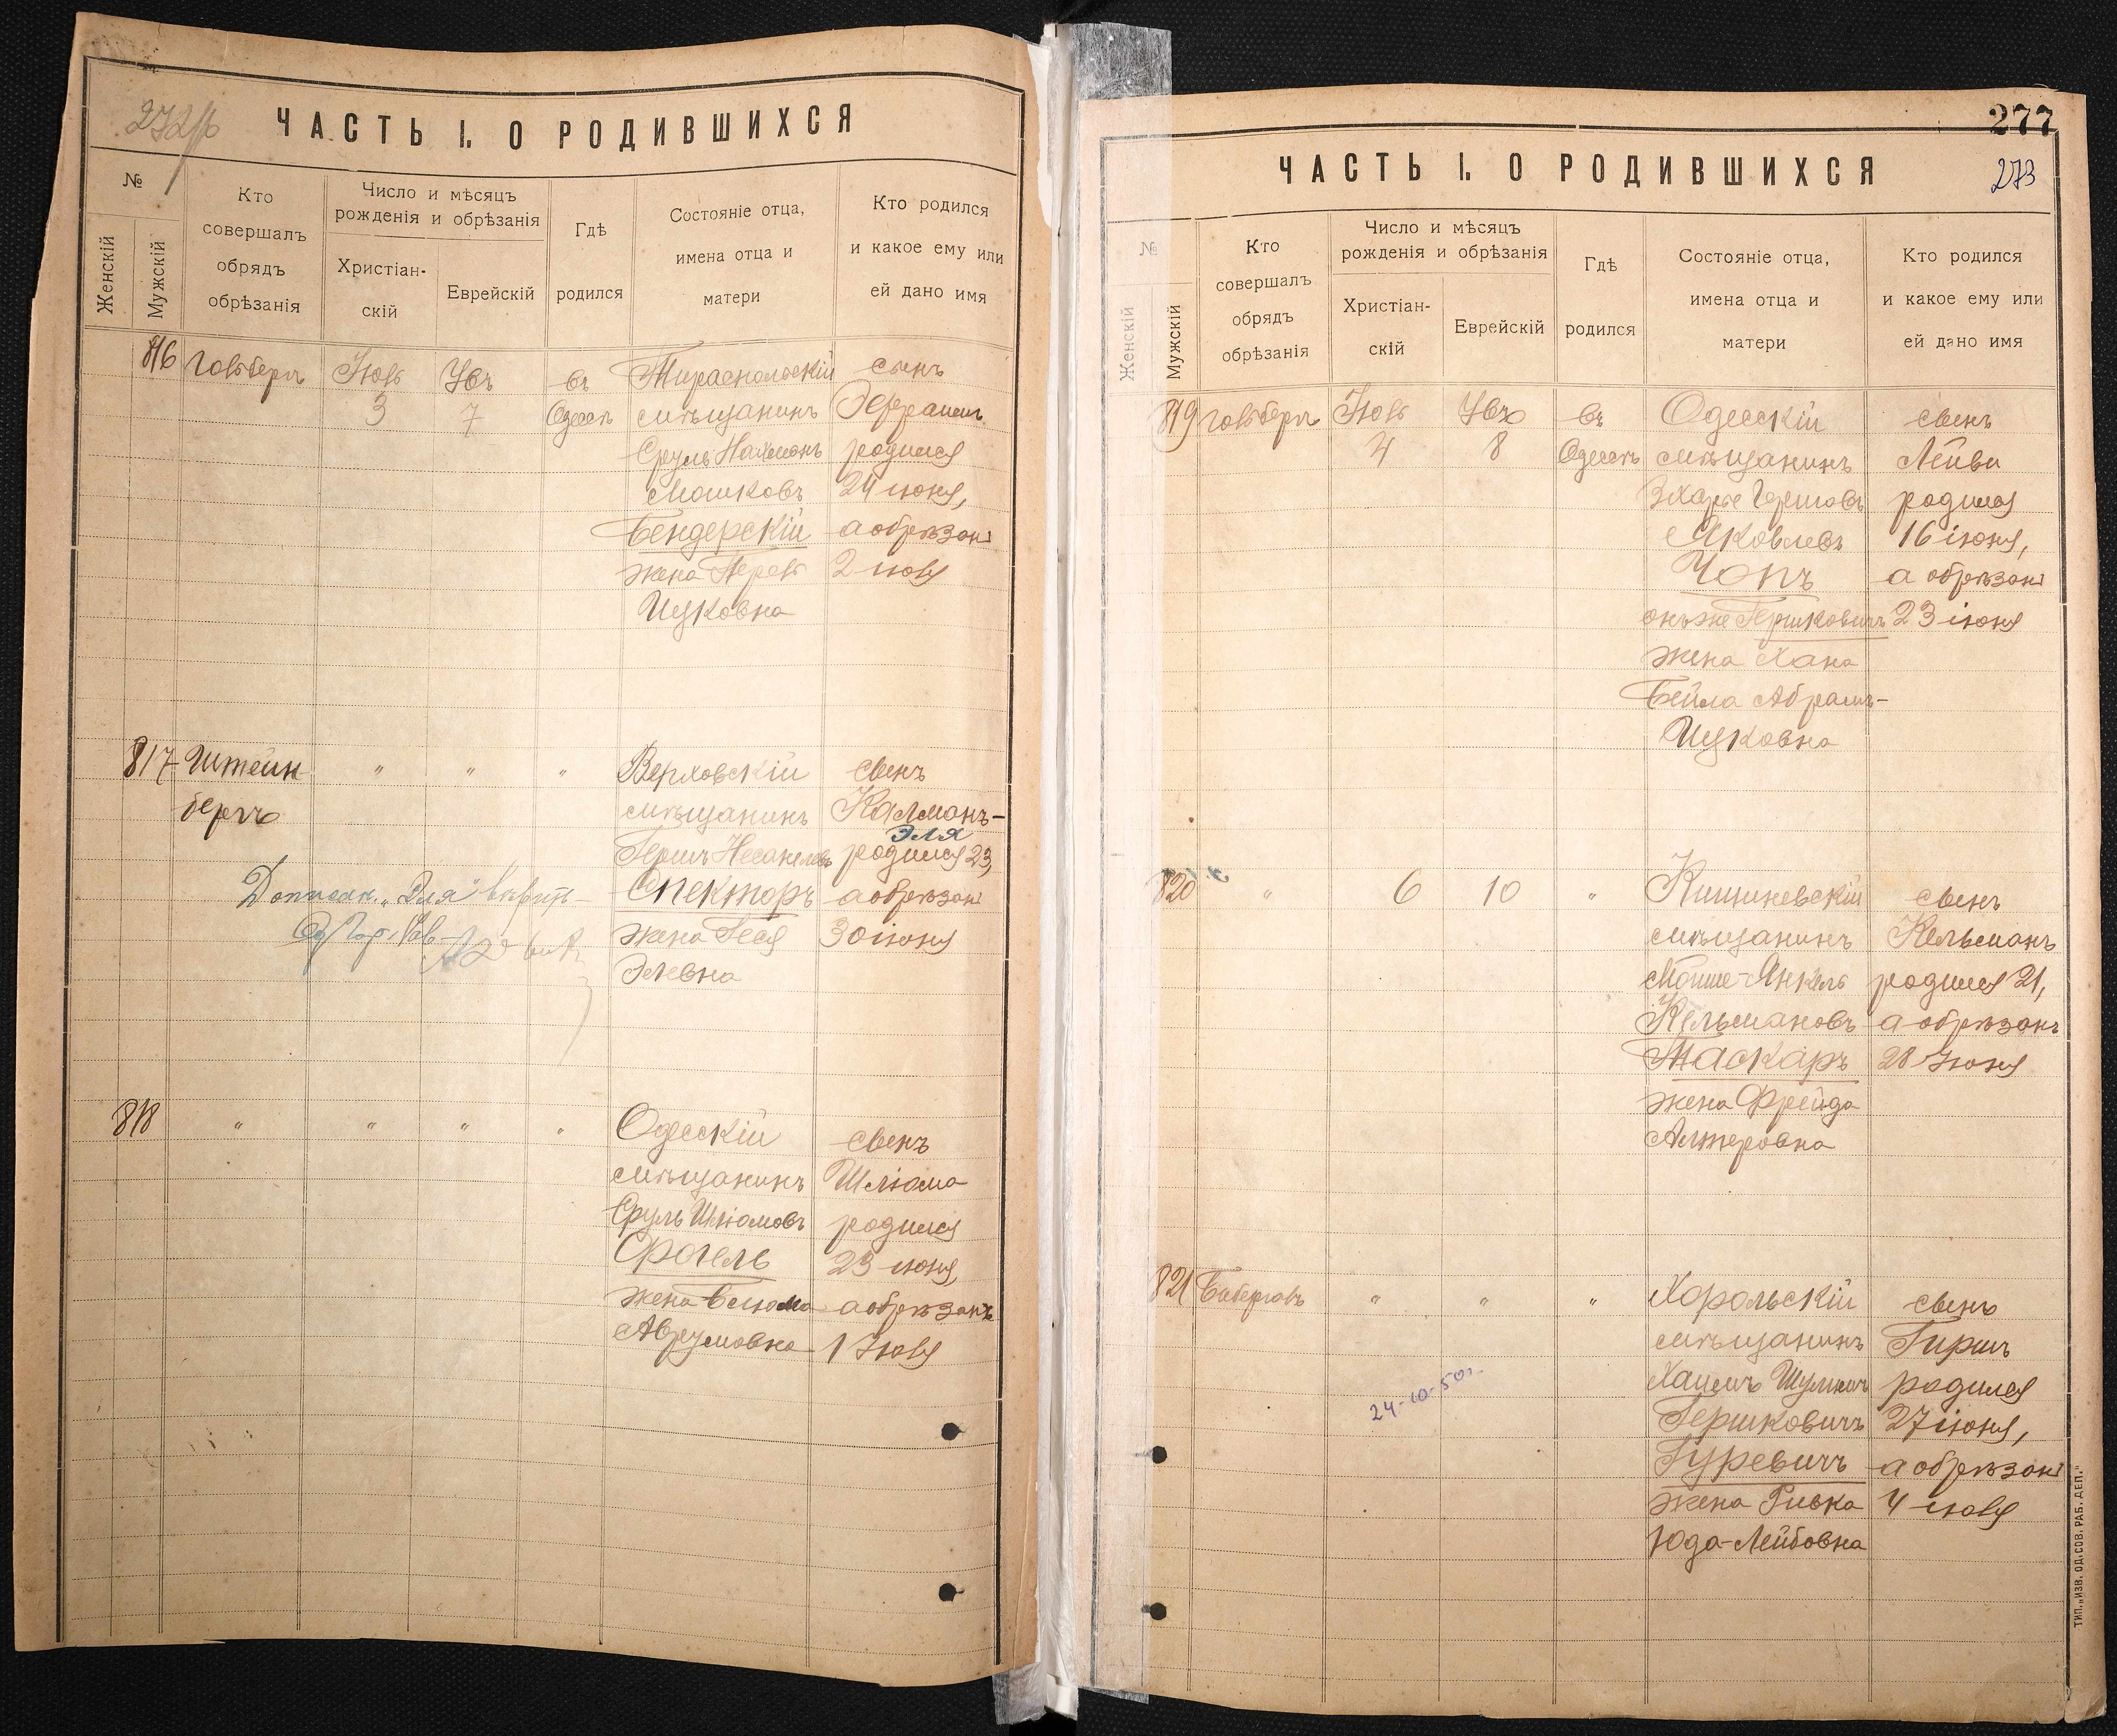 ЧАСТЬ I. О РОДИВШИХСЯ
№
Женскій
Мужскій
Кто
совершалъ
обрядъ
обрѣзанія
Число и мѣсяцъ
рожденія и обрѣзанія
Христіан-
скій
Еврейскій
Гдѣ
родился
Состояніе отца,
имена отца и
матери
Кто родился
и какое ему или
ей дано имя
816
Гольберг
Іюль
3
7
въ
Одессѣ
Тираспольскій
мѣщанинъ
Сруль Нахманъ
Мошковъ
Бендерскій
жена Перль
Ицковна
сынъ
Эфраимъ
родился
24 июня,
а обрѣзанъ
2 июля
817
Штейн
бергъ
"
"
"
Верховскій
мѣщанинъ
Гершъ
Спекторъ
жена Геся
Элевна
сынъ
Калманъ-
Эля
родился 23,
а обрѣзан
30 июня
818
"
"
"
"
Одесскій
мѣщанинъ
Сруль Шлиомовъ
Фогель
жена
Аврумовна
сынъ
Шлиома
родился
23 июня,
а обрѣзанъ
1 Июля
277
273
ЧАСТЬ I. О РОДИВШИХСЯ
№
Женскій
Мужскій
Кто
совершалъ
обрядъ
обрѣзанія
Число и мѣсяцъ
рожденія и обрѣзанія
Христіан-
скій
Еврейскій
Гдѣ
родился
Состояніе отца,
имена отца и
матери
Кто родился
и какое ему или
ей дано имя
819
Гольберг
Іюль
4
8
въ
Одессѣ
Одесскій
мѣщанинъ
Яковлевъ
Чопъ
онъ же Гершковичъ
жена Хана
Бейла Абрамъ-
Ицковна
сынъ
Лейви
родился
16 іюня,
а обрѣзан
23 іюня
820
"
6
10
"
Кишиневскій
мѣщанинъ
Мойше-Янкель
Кельмановъ
Маскаръ
жена Фрейда
Алтеровна
сынъ
Кельманъ
родился 21,
а обрѣзанъ
28 Июня
821
"
"
"
Хорольскій
мѣщанинъ
Гершковичъ
Гуревичъ
жена Ривка
Юда-Лейбовна
сынъ
Гиршъ
родился
27 іюня,
а обрѣзан
4 июля
24-10-50г.
ТИП. „ИЗВ. ОД. СОВ. РАБ. ДЕП."